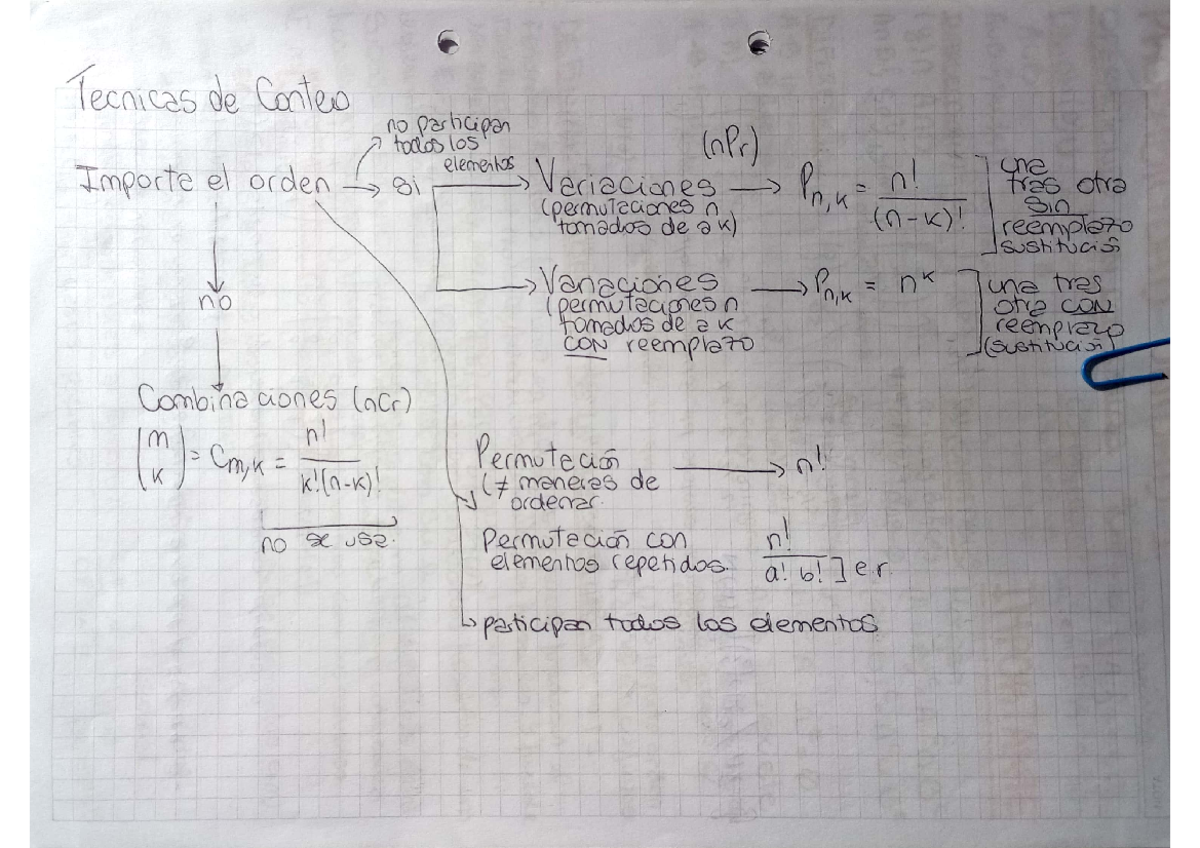 Tecnicas de Conteo
no participan
todos los
elementos
Importa el orden → si
Variaciones → (nPr) P n,k = n! / (n-k)!
(permutaciones n
tomados de a k)
una
tras otra
sin
reemplazo
sustitució
Variaciones → P n,k = n^k
(permutaciones n
tomados de a k
CON reemplazo
una tras
otra CON
reemplazo
(sustitució)
no
Combinaciones (nCr)
(m k) = C m,k = n! / k!(n-k)!
no se usa.
Permutación → n!
(≠ maneras de
ordenar.
Permutación con
elementos repetidos. n! / a! b! ] e.r
↳ participan todos los elementos